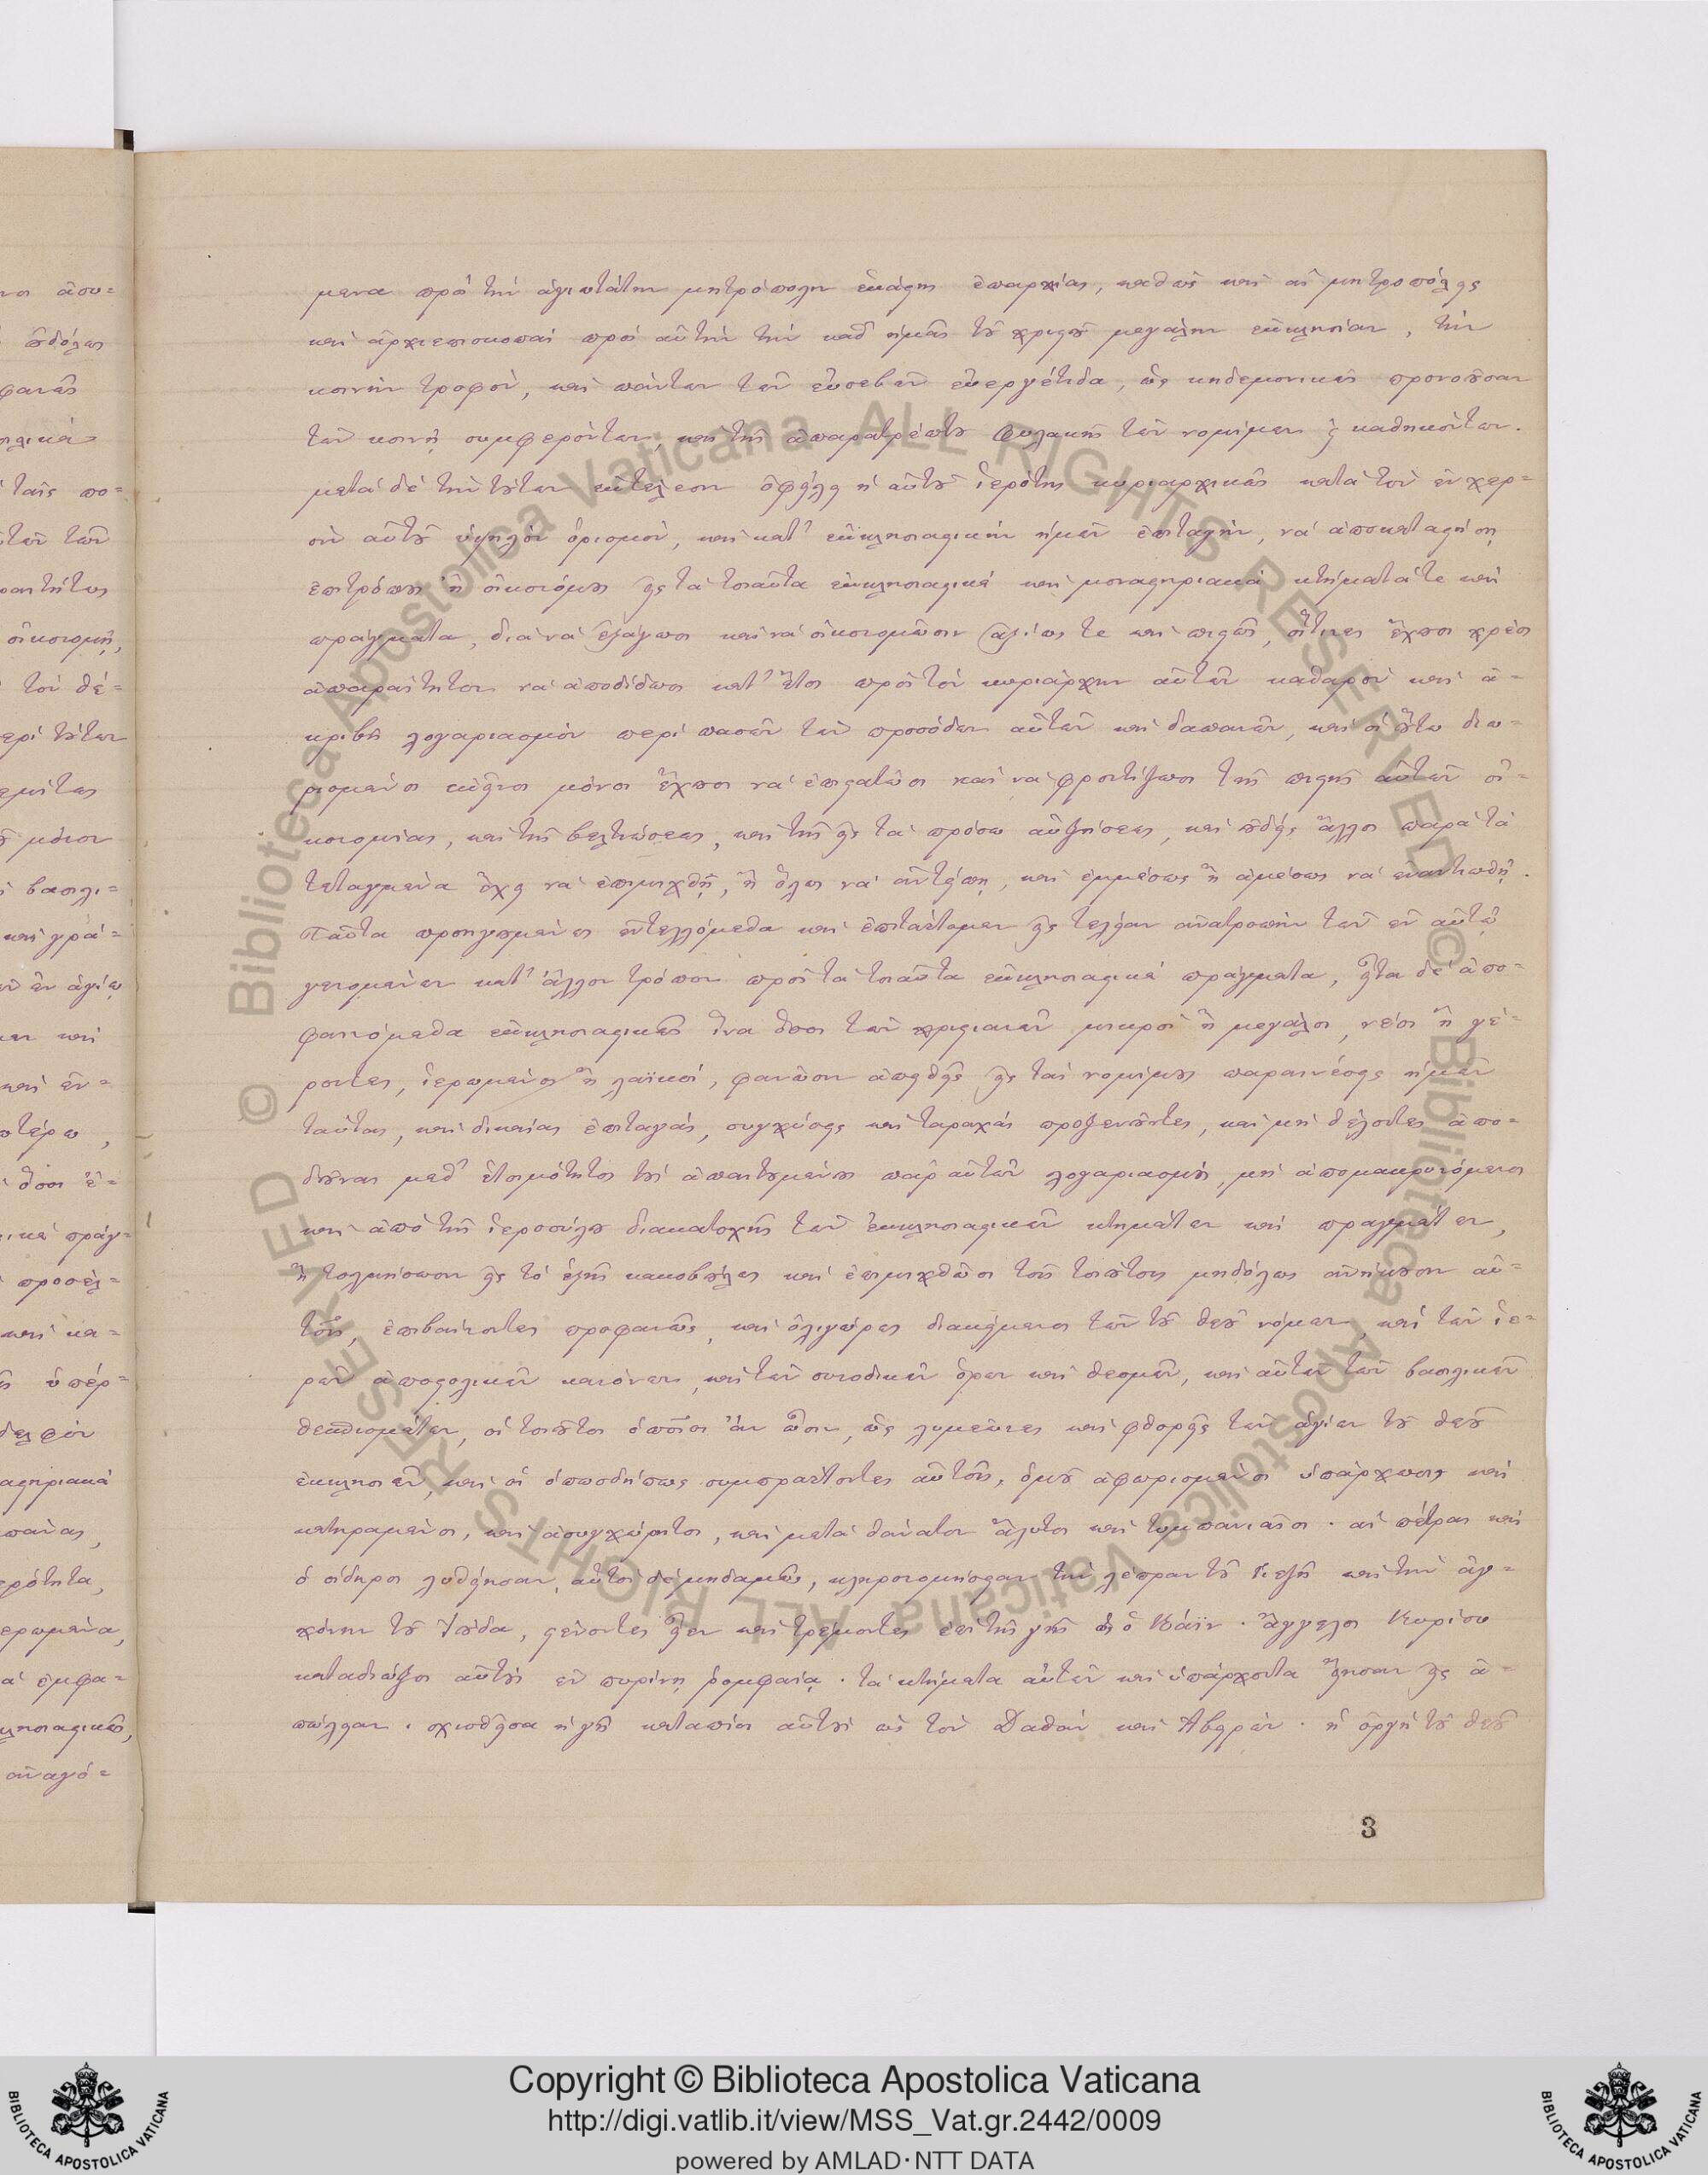 μενα πρὸς τὴν ἁγιωτάτην μητρόπολιν ἑκάστης ἐπαρχίας, καθὼς καὶ αἱ μητροπόλεις
καὶ ἀρχιεπισκοπαὶ πρὸς αὐτὴν τὴν καθ' ἡμᾶς τοῦ χριστοῦ μεγάλην ἐκκλησίαν, τὴν
κοινὴν τροφὸν, καὶ πάντων τῶν εὐσεβῶν εὐεργέτιδα, ὡς κηδεμονικῶς προνοοῦσαν
τῶν κοινῇ συμφερόντων, καὶ τῆς ἀπαρατρέπτου φυλακῆς τῶν νομίμων καὶ καθηκόντων.
μετὰ δὲ τὴν τούτων ἐκτέλεσιν ὀφείλει ἡ αὐτοῦ ἱερότης κυριαρχικῶς κατὰ τὸν ἐν χερ=
σὶν αὐτοῦ ὑψηλὸν ὁρισμὸν, καὶ κατ' ἐκκλησιαστικὴν ἡμῶν ἐπιταγὴν, νὰ ἀποκαταστήσῃ
ἐπιτρόπους ἢ οἰκονόμους εἰς τὰ τοιαῦτα ἐκκλησιαστικὰ καὶ μοναστηριακὰ κτήματά τε καὶ
πράγματα, διὰ νὰ ἐξάγωσι καὶ νὰ οἰκονομῶσιν ἀξίως τε καὶ πιστῶς, οἵτινες ἔχουσι χρέος
ἀπαραίτητον νὰ ἀποδίδωσι κατ' ἔτος πρὸς τὸν κυριάρχην αὐτῶν καθαρὸν καὶ ἀ=
κριβῆ λογαριασμὸν περὶ πασῶν τῶν προσόδων αὐτῶν καὶ δαπανῶν, καὶ οἱ οὕτω διω=
ρισμένοι κἀκεῖνοι μόνοι ἔχουσι νὰ ἐπιστατῶσι καὶ νὰ φροντίζωσι τῆς πιστῆς αὐτῶν οἰ=
κονομίας, καὶ τῆς βελτιώσεως, καὶ τῆς εἰς τὰ πρόσω αὐξήσεως, καὶ οὐδεὶς ἄλλος παρὰ τὰ
τεταγμένα ἔχει νὰ ἐπιμιχθῇ, ἢ ὅλως νὰ ἀντείπῃ, καὶ ἐμμέσως ἢ ἀμέσως νὰ ἐναντιωθῇ.
Ταῦτα προηγουμένως ἐντελλόμεθα καὶ ἐπιτάττομεν εἰς τελείαν ἀνατροπὴν τῶν ἐν αὐτῷ
γενομένων κατ' ἄλλον τρόπον πρὸς τὰ τοιαῦτα ἐκκλησιαστικὰ πράγματα, εἶτα δὲ ἀπο=
φαινόμεθα ἐκκλησιαστικῶς ἵνα ὅσοι τῶν χριστιανῶν μικροὶ ἢ μεγάλοι, νέοι ἢ γέ=
ροντες, ἱερωμένοι ἢ λαϊκοὶ, φανῶσιν ἀπειθεῖς εἰς τὰς νομίμους παραινέσεις ἡμῶν
ταύτας, καὶ δικαίας ἐπιταγὰς, συγχύσεις καὶ ταραχὰς προξενοῦντες, καὶ μὴ θέλοντες ἀπο=
δοῦναι μεθ' ἑτοιμότητος τοὺς ἀπαιτουμένους παρ' αὐτῶν λογαριασμοὺς, μὴ ἀπομακρυνόμενοι
καὶ ἀπὸ τῆς ἱεροσύλου διακατοχῆς τῶν ἐκκλησιαστικῶν κτημάτων καὶ πραγμάτων,
ἢ τολμήσωσιν εἰς τὸ ἑξῆς κακοβούλως καὶ ἐπιμιχθῶσι τοῖς τοιούτοις μηδόλως ἀνήκουσιν αὐ=
τοῖς, ἐπιβαίνοντες προφανῶς, καὶ ὀλιγώρως διακείμενοι τῶν τοῦ θεοῦ νόμων, καὶ τῶν ἱε=
ρῶν ἀποστολικῶν κανόνων, καὶ τῶν συνοδικῶν ὅρων καὶ θεσμῶν, καὶ αὐτῶν τῶν βασιλικῶν
θεσπισμάτων, οἱ τοιοῦτοι ὁποῖοι ἂν ὦσιν, ὡς λυμεῶνες καὶ φθορεῖς τῶν ἁγίων τοῦ θεοῦ
ἐκκλησιῶν, καὶ οἱ ὁπωσδήπως συμπράττοντες αὐτοῖς, ὁμοῦ ἀφωρισμένοι ὑπάρχωσι καὶ
κατηραμένοι, καὶ ἀσυγχώρητοι, καὶ μετὰ θάνατον ἄλυτοι καὶ τυμπανιαῖοι. αἱ πέτραι καὶ
ὁ σίδηρος λυθείησαν, αὐτοὶ δὲ μηδαμῶς, κληρονομήσειαν τὴν λέπραν τοῦ Γιεζῆ καὶ τὴν ἀγ=
χόνην τοῦ Ἰούδα, στένοντες εἶεν καὶ τρέμοντες ἐπὶ τῆς γῆς ὡς ὁ Κάϊν. Ἄγγελος Κυρίου
καταδιώξοι αὐτοὺς ἐν πυρίνῃ ῥομφαίᾳ. τὰ κτήματα αὐτῶν καὶ ὑπάρχοντα εἴησαν εἰς ἀ=
πώλειαν. σχισθεῖσα ἡ γῆ καταπίοι αὐτοὺς ὡς τὸν Δαθὰν καὶ Ἀβειρὼν. ἡ ὀργὴ τοῦ θεοῦ
3
Copyright © Biblioteca Apostolica Vaticana
http://digi.vatlib.it/view/MSS_Vat.gr.2442/0009
powered by AMLAD·NTT DATA